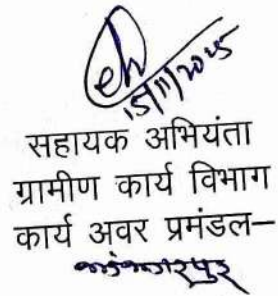 15/11/2025
सहायक अभियंता
ग्रामीण कार्य विभाग
कार्य अवर प्रमंडल–
झंझारपुर